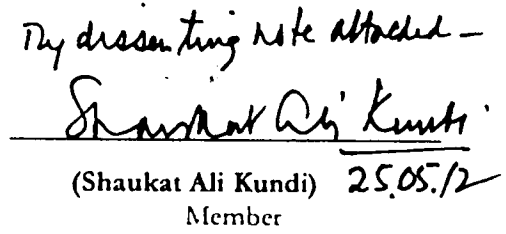 My dissenting note attached –
Shaukat Ali Kundi
(Shaukat Ali Kundi) 25.05.12
Member